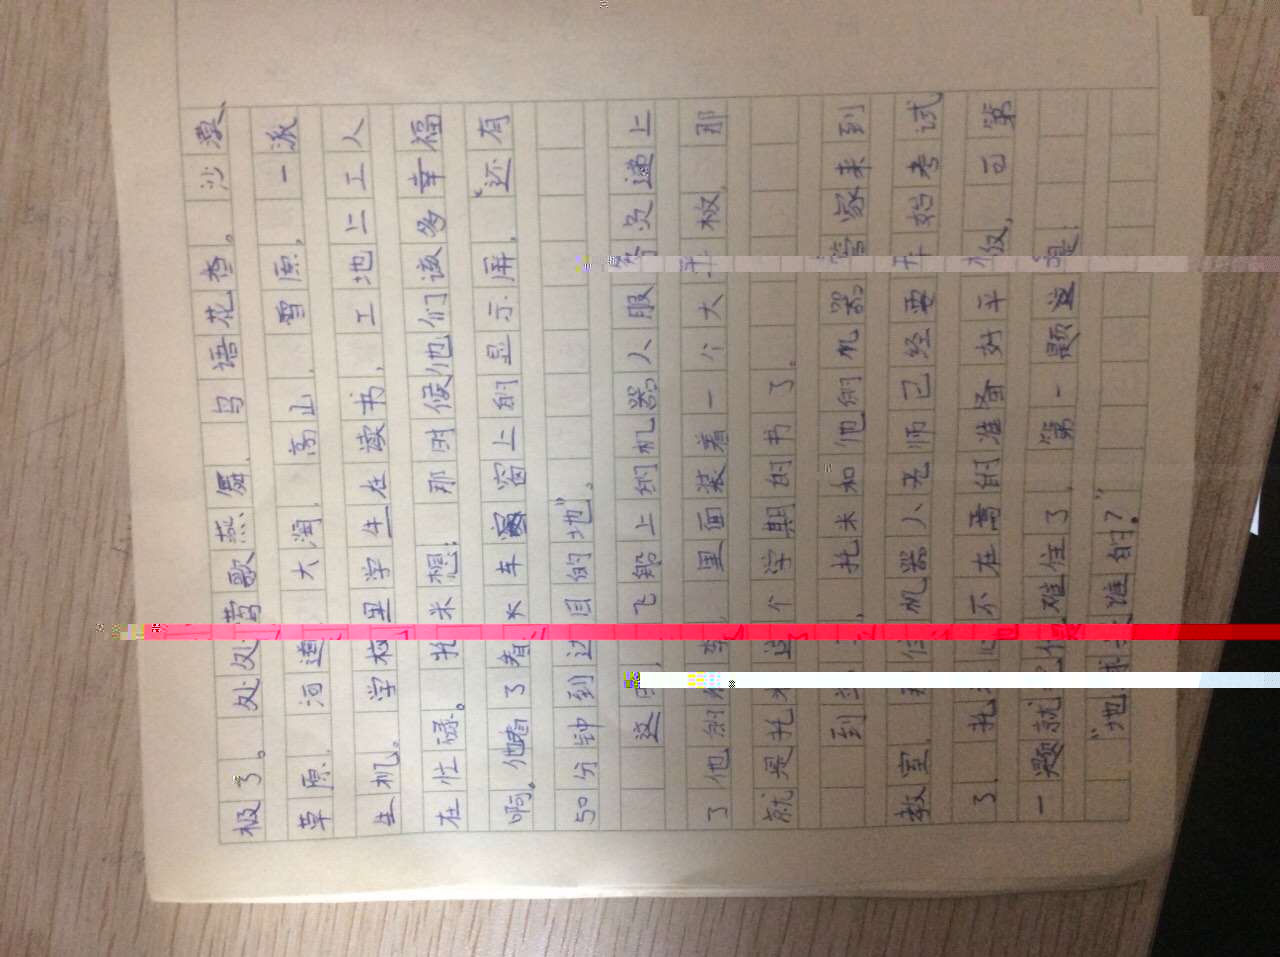 极了。处处莺歌燕舞，鸟语花香。沙漠、
草原、河道、大海、高山、雪原，一派
生机。学校里学生在读书，工地上工人
在忙碌。托米想：那时候他们该多幸福
啊。他看了看火车窗上的显示屏，“还有
50分钟到达目的地”。
这，飞船上的机器人服务员递上
了他的，里面装着一个大平板，那
就是托这个学期的书了。
到，托米和他的机器管家来到
教室，机器人老师已经要开始考试
了，托不在意的准备好平板，可第
一题就难住了，第一题这是：
“地球是谁的？”